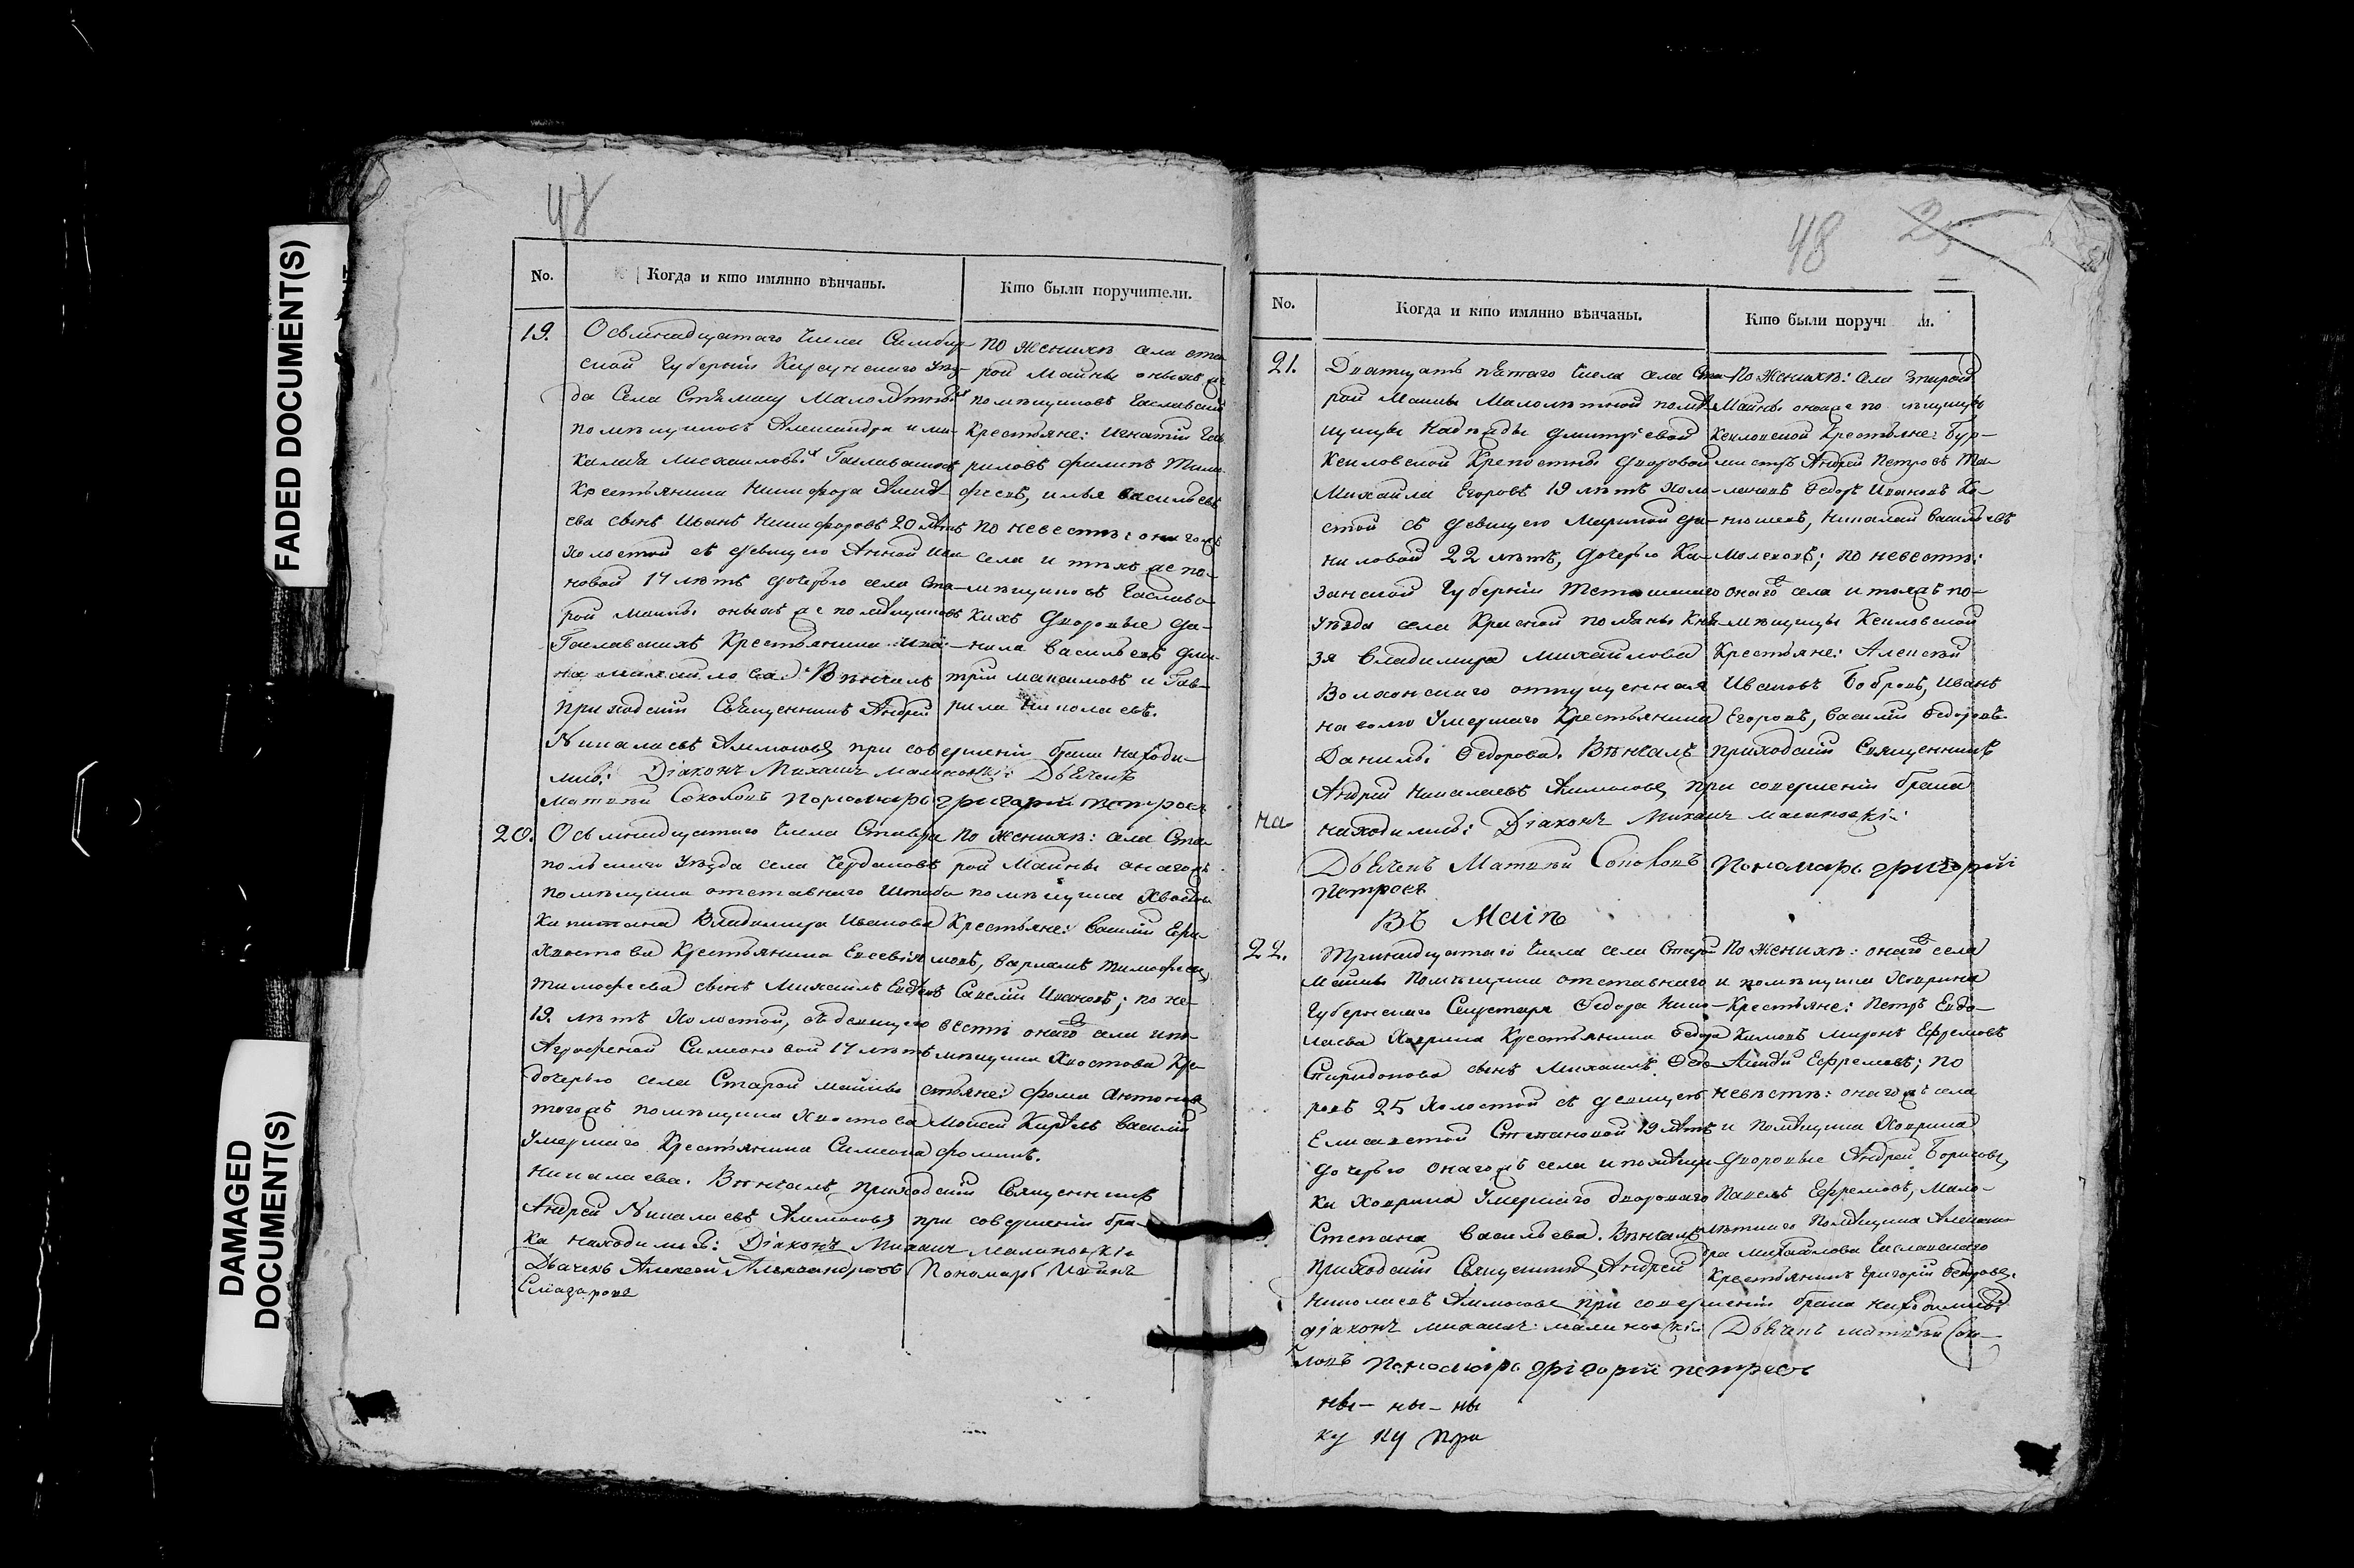 FADED DOCUMENT(S)
DAMAGED
DOCUMENT(S)
48
No. Когда и кто имянно вѣнчаны. Кто были поручители.
19. Осьмнадцатаго числа Симбир-
ской Губерніи Карсунскаго Уѣз-
да Села Стемасу Малолѣтныхъ
помѣщиковъ Александра и Ми-
хаила Михаиловыхъ
Крестьянина Никифора Алекѣ-
ева сынъ Иванъ Никифоровъ 20 лѣтъ
холостой съ девицею Анной Ива-
новой 17 лѣтъ дочерью села Ста-
рой Майны оныхъ же помѣщиковъ
Крестьянина
Михайлова. Вѣнчалъ
Приходскій Священникъ Андрей
Николаевъ Аммосовъ при совершеніи брака находи-
лись: Діаконъ Михаилъ Малиновскій Дьячекъ
Матвѣй Соколовъ Пономарь Григорій Петровъ
По женихѣ села Ста-
рой Майны оныхъ же
помѣщиковъ
Крестьяне: Игнатій Гав-
риловъ Филипъ Тимо-
феевъ, Илья Васильевъ
По невестѣ: онагожъ
села и тѣхъ же по-
мѣщиковъ
Дворовые Да-
нила Васильевъ Дми-
трій Максимовъ и Гав-
рила Николаевъ.
20. Осьмнадцатаго числа Ставро-
польскаго Уѣзда села Чердаковъ
помѣщика отставнаго Штабс
Капитана Владимира Иванова
Хвостова Крестьянина Евсевія
Тимофеева сынъ Михаилъ Евсѣевъ
19. лѣтъ Холостой, съ девицею
Агрофеной Симеоновой 17 лѣтъ
дочерью села Старой Майны
тогожъ помѣщика Хвостова
Умершаго Крестьянина Симеона
Николаева. Вѣнчалъ Приходскій Священникъ
Андрей Николаевъ Аммосовъ при совершеніи бра-
ка находились: Діаконъ Михаилъ Малиновскій
Дьячекъ Алексей Александровъ Пономарь
Елиазаровъ
По женихѣ: села Ста-
рой Майны онагожъ
помѣщика Хвостова
Крестьяне: Василій Ефи-
мовъ, Варламъ Тимофеевъ
Савелій Ивановъ; по не-
вестѣ онагоже села и по-
мѣщика Хвостова Кре-
стьяне: Фома Антоновъ
Моисей Кирѣевъ Василій
Фоминъ.
48 25
No. Когда и кто имянно вѣнчаны. Кто были поручи м.
21. Дватцать пятаго числа села Ста-
рой Майны Малолѣтной помѣ-
щицы Надежды Дмитріевой
Крепостный дворовой
Михайла Егоровъ 19 лѣтъ холо-
стой съ девицею Мариной Да-
ниловой 22 лѣтъ, дочерью Ка-
занской Губерніи Тетюшскаго
Уѣзда села Красной поляны Кня-
зя Владимира Михайлова
Волконскаго отпущенная
на волю Умершаго Крестьянина
Данилы Федорова. Вѣнчалъ приходскій Священникъ
Андрей Николаевъ Аммосовъ при совершеніи брака
на находились: Діаконъ Михаилъ Малиновскій
Дьячекъ Матвѣй Соколовъ Пономарь Григорій
Петровъ
По женихѣ: села Старой
Майны онаже по мѣщицы
Крестьяне: Бур-
мистръ Андрей Петровъ
Федоръ Ивановъ
Николай Васильевъ
по невестѣ:
онагоже села и тояжъ по-
мѣщицы
Крестьяне: Алексѣй
Ивановъ Бобровъ, Иванъ
Егоровъ, Василій Федоровъ
Въ Маіѣ
22. Тринадцатаго числа села Старой
Майны Помѣщика отставнаго
Губернскаго Секретаря Федора Нико-
лаева Ховрина Крестьянина Федора
Спиридонова сынъ Михаилъ Федо-
ровъ 25 Холостой съ девицей
Елисаветой Степановой 19 лѣтъ
дочерью онагожъ села и помѣщи-
ка Ховрина Умершаго двороваго
Степана Васильева. Вѣнчалъ
Приходскій Священникъ Андрей
Николаевъ Аммосовъ при совершеніи брака находились
діаконъ Михаилъ Малиновскій Дьячекъ Матвѣй Соко-
ловъ Пономарь Григорій Петровъ
По женихѣ: онагоже села
и помѣщика Ховрина
Крестьяне: Петръ Евдо-
кимовъ Миронъ Ефремовъ
Ефремовъ; по
невѣстѣ: онагожъ села
и Помѣщика Ховрина
Дворовые Андрей Борисовъ,
Павелъ Ефремовъ, Мало-
лѣтнаго Помѣщика Алексан-
ра Михайлова
Крестьянинъ Григорій Федоровъ.
ны - ны - ны
ку пу при